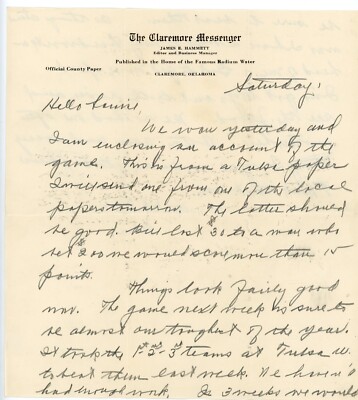 The Claremore Messenger
JAMES E. HAMMETT
Editor and Business Manager
Official County Paper
Published in the Home of the Famous Radium Water
CLAREMORE, OKLAHOMA
Saturday,
Hello Louise,
We won yesterday and
I am enclosing an account of the
game. This is from a Tulsa paper
I will send one from one of the local
papers tomorrow. The latter should
be good. He lost $30 to a man who
bet 2 on we would score more than 15
points.
Things look fairly good
now. The game next week is sure to
be almost our toughest of the year.
It took the 1st 2nd 3rd teams at Tulsa U.
to beat them last week. We haven't
had enough work. In 3 weeks we would